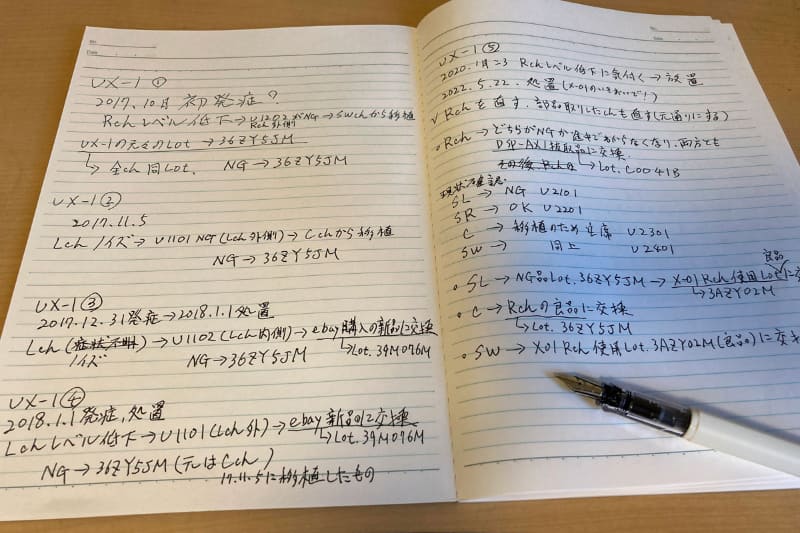 UX-1 ①
2017.10月 初発症?
Rch レベル低下→U1202がNG→SWchから移植
Rch外側
UX-1の元々のLot→36ZY5JM
全ch同Lot. NG→36ZY5JM
UX-1②
2017.11.5
Lchノイズ→U1101 NG(Lch外側)→Cchから移植
NG→36ZY5JM
UX-1③
2017.12.31発症→2018.1.1処置
Lch(症状不明)→U1102(Lch内側)→ebay購入の新品に交換
ノイズ NG→36ZY5JM Lot.39M076M
UX-1④
2018.1.1発症,処置
Lchレベル低下→U1101(Lch外)→ebay新品に交換
Lot.39M076M
NG→36ZY5JM(元はCch)
17.11.5に移植したもの
No.
Date
UX-1⑤
2020.1月ころ Rchレベル低下に気付く→放置
2022.5.22.処置(X-01のいきおいで!)
√Rchを直す,部品取りしたchも直す(元通りにする)
○Rch→どちらがNGか途中でわからなくなり,両方とも
DSP-AX1抜取品に交換.
その後Rchの Lot.C0041B
現状確認.
SL→NG U2101
SR→OK U2201
C→移植のため空席 U2301
SW→ 同上 U2401
良品
○SL→NG品Lot.36ZY5JM→X-01 Rch使用Lotに交
3AZY02M
○C→Rchの良品に交換
Lot.36ZY5JM
○SW→X01 Rch使用Lot.3AZY02M(良品)に交